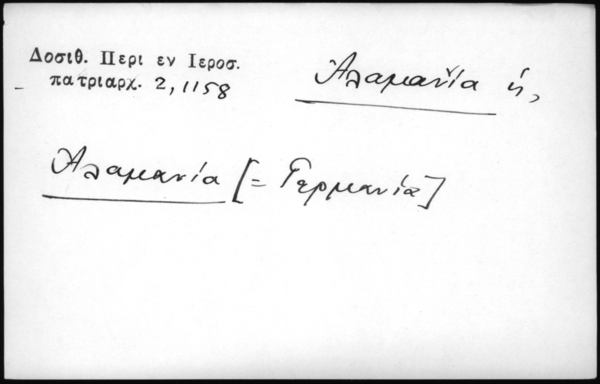 Δοσιθ. Περι εν Ιεροσ.
πατριαρχ. 2, 1158
Ἀλαμανία ἡ,
Ἀλαμανία [= Γερμανία]